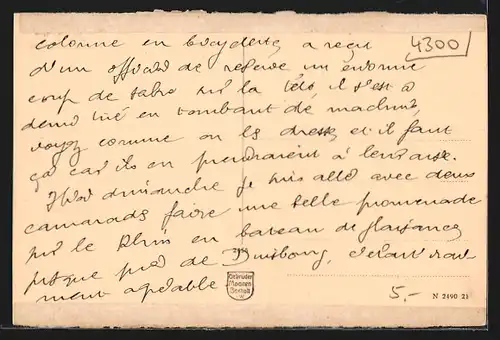 4300
colonne en bicyclette a reçu
d'un officier de réserve un énorme
coup de sabre sur la tête, il s'est à
demi tué en tombant de machine,
voyez comme on les dresse et il faut
ça car ils en prendraient à leur aise.
Hier dimanche je suis allé avec deux
camarads faire une belle promenade
sur le Rhin en bateau de plaisance
jusque près de Duisbourg, c'était vrai-
ment agréable
Gebrüder
5.- N 2490 21